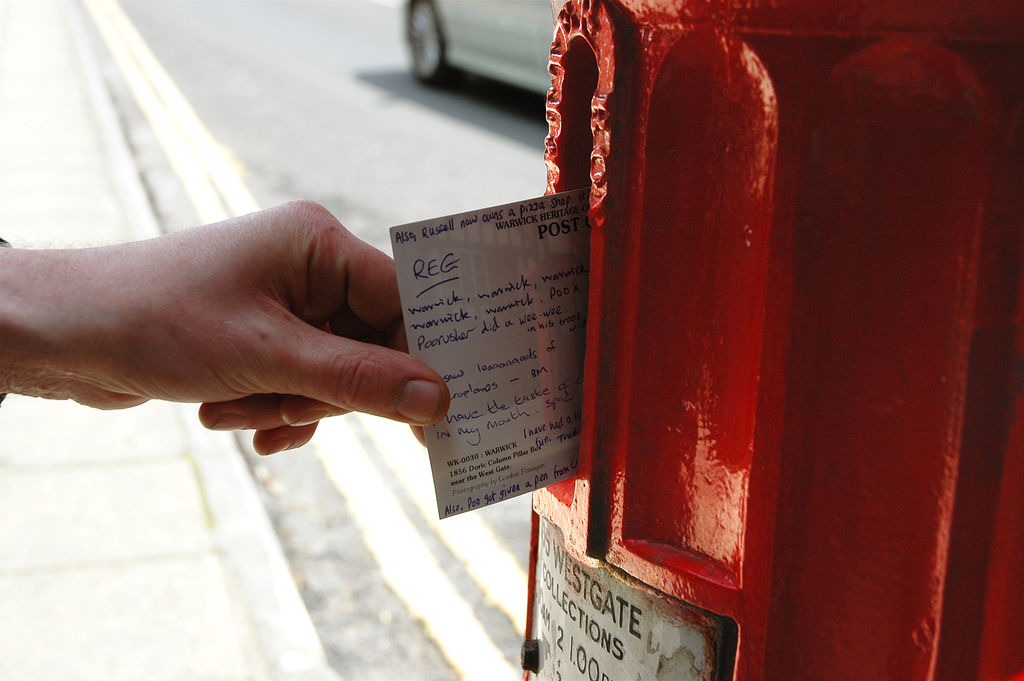 Also, Russell now owns a pizza shop
WARWICK HERITAGE
POST
REG
warwick, warwick, warwick
warwick, warwick. Poo
Poorusher did a wee-wee
in his
saw loaaaaaads of
aeroplanes - BM.
have the taste of
in my mouth.
I have had a
fun.
WK-0030 : WARWICK
1856 Doric Column Pillar Box
near the West Gate.
Photography by Gordon Flanagan
Also, Poo got given a pen from
WESTGATE
COLLECTIONS
2 1.00